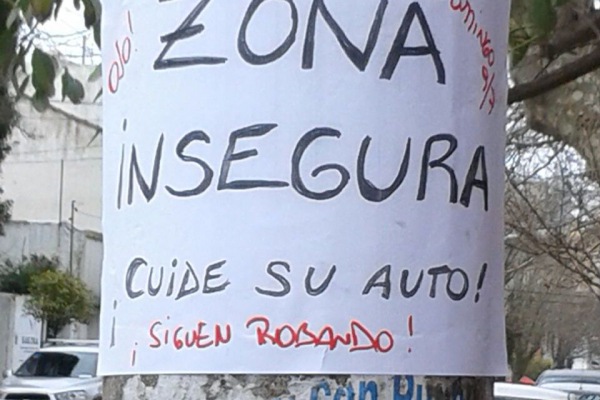 OJO!
ZONA
DOMINGO 9/7
INSEGURA
¡CUIDE SU AUTO!
¡SIGUEN ROBANDO!
con